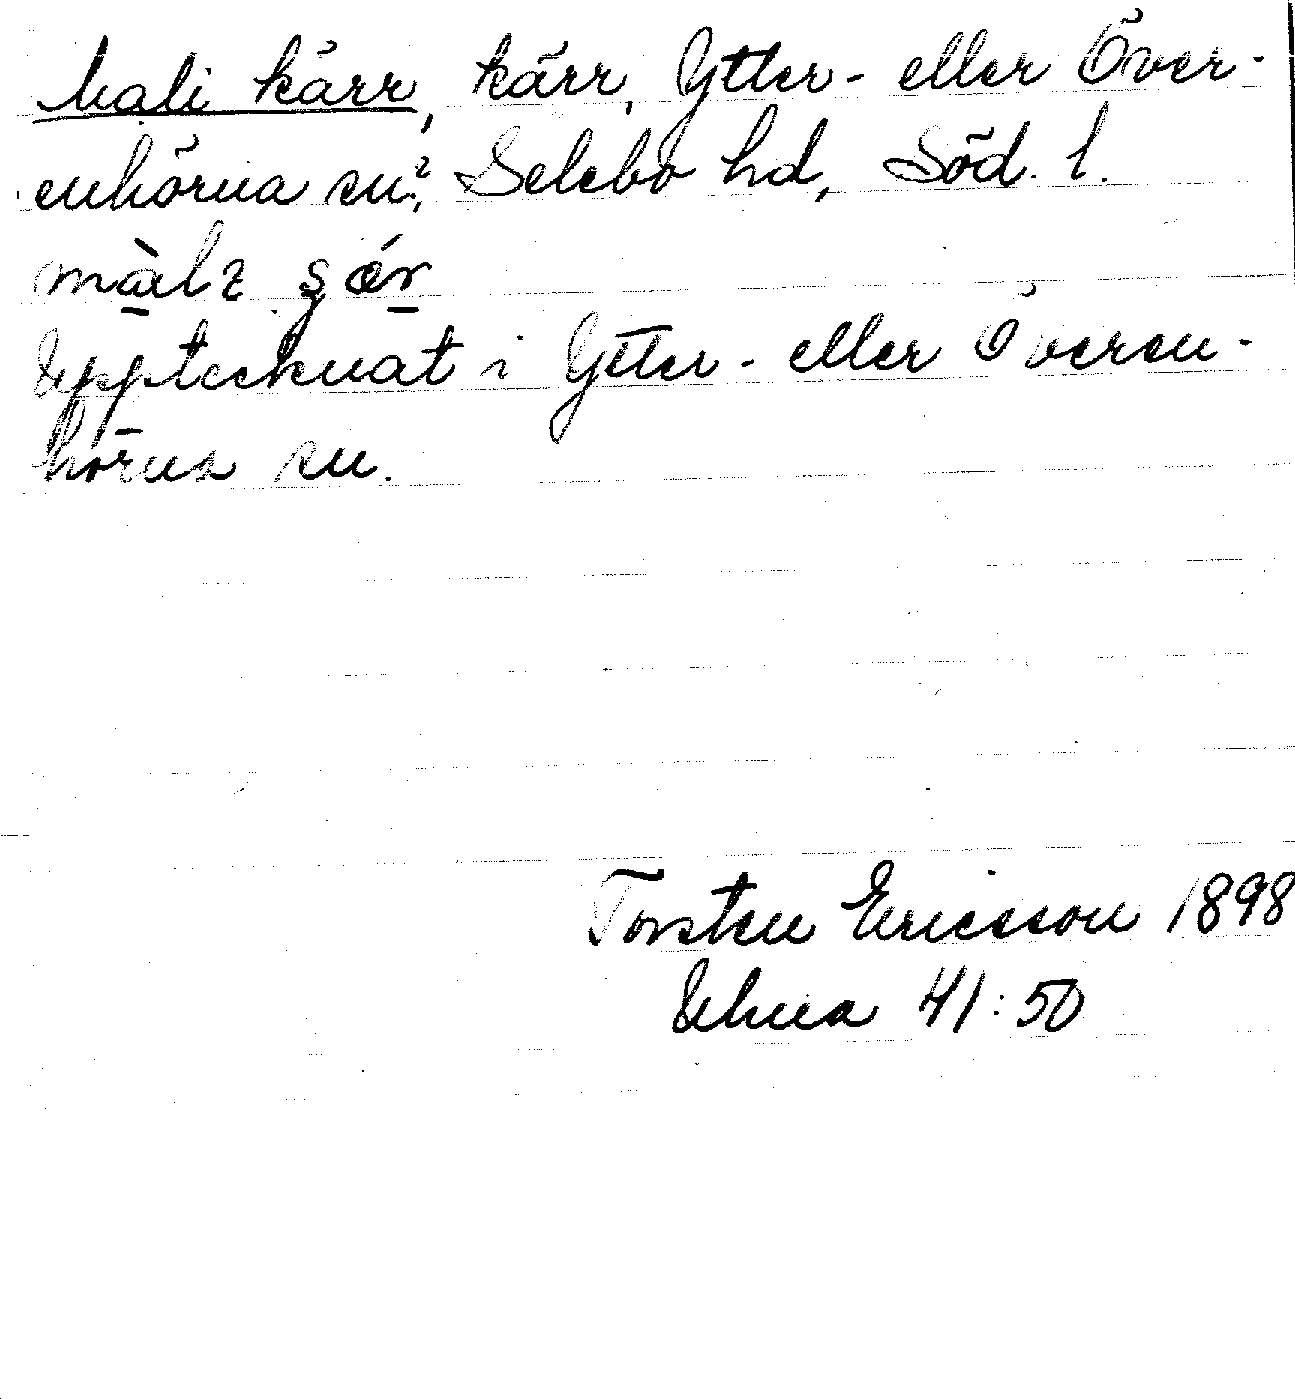 Mali kärr, kärr, Ytter- eller Över-
enhörna sn?, Selebo hd, Söd. l.
Upptecknat i Ytter- eller Överen-
hörna sn.
Torsten Ericsson 1898
41:50